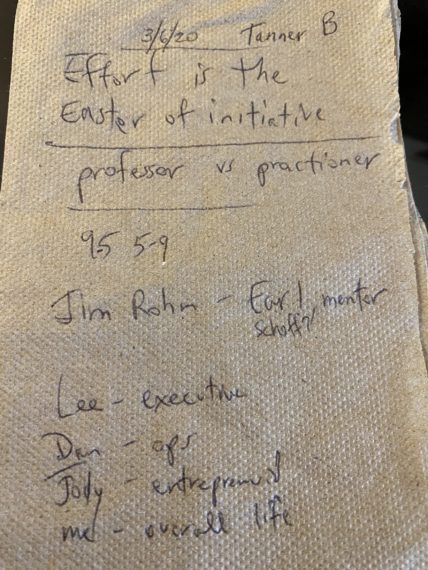 3/6/20 Tanner B
Effort is the
Easter of initiative
professor vs practioner
95 5-9
Jim Rohn - Earl, mentor
schoff?
Lee - executive
Dan - ops
Jody - entreprenued
me - overall life